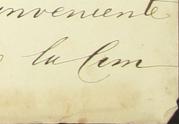 inveniente
la Cem